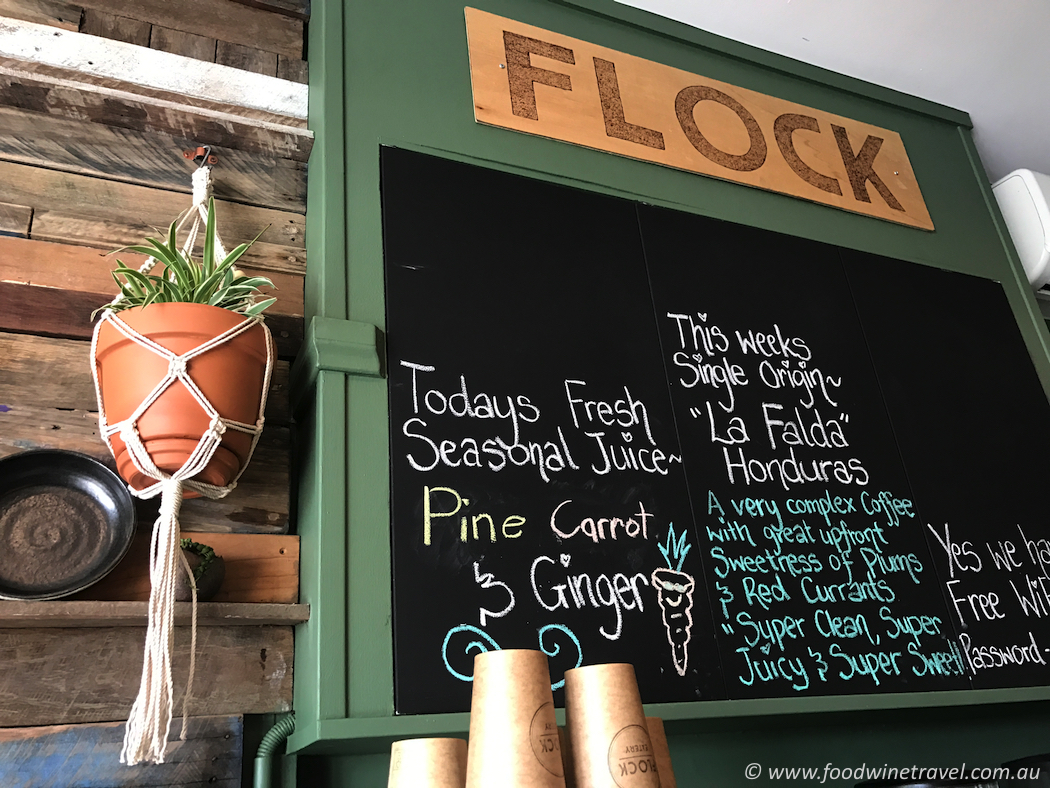 FLOCK
Todays Fresh
Seasonal Juice~
Pine Carrot
& Ginger
This weeks
Single Origin~
"La Falda"
Honduras
A very complex Coffee
with great upfront
Sweetness of Plums
& Red Currants
"Super Clean, Super
Juicy & Super Sweet!
Yes we ha
Free Wif
Password-
FLOCK
EATERY
FLOCK
© www.foodwinetravel.com.au